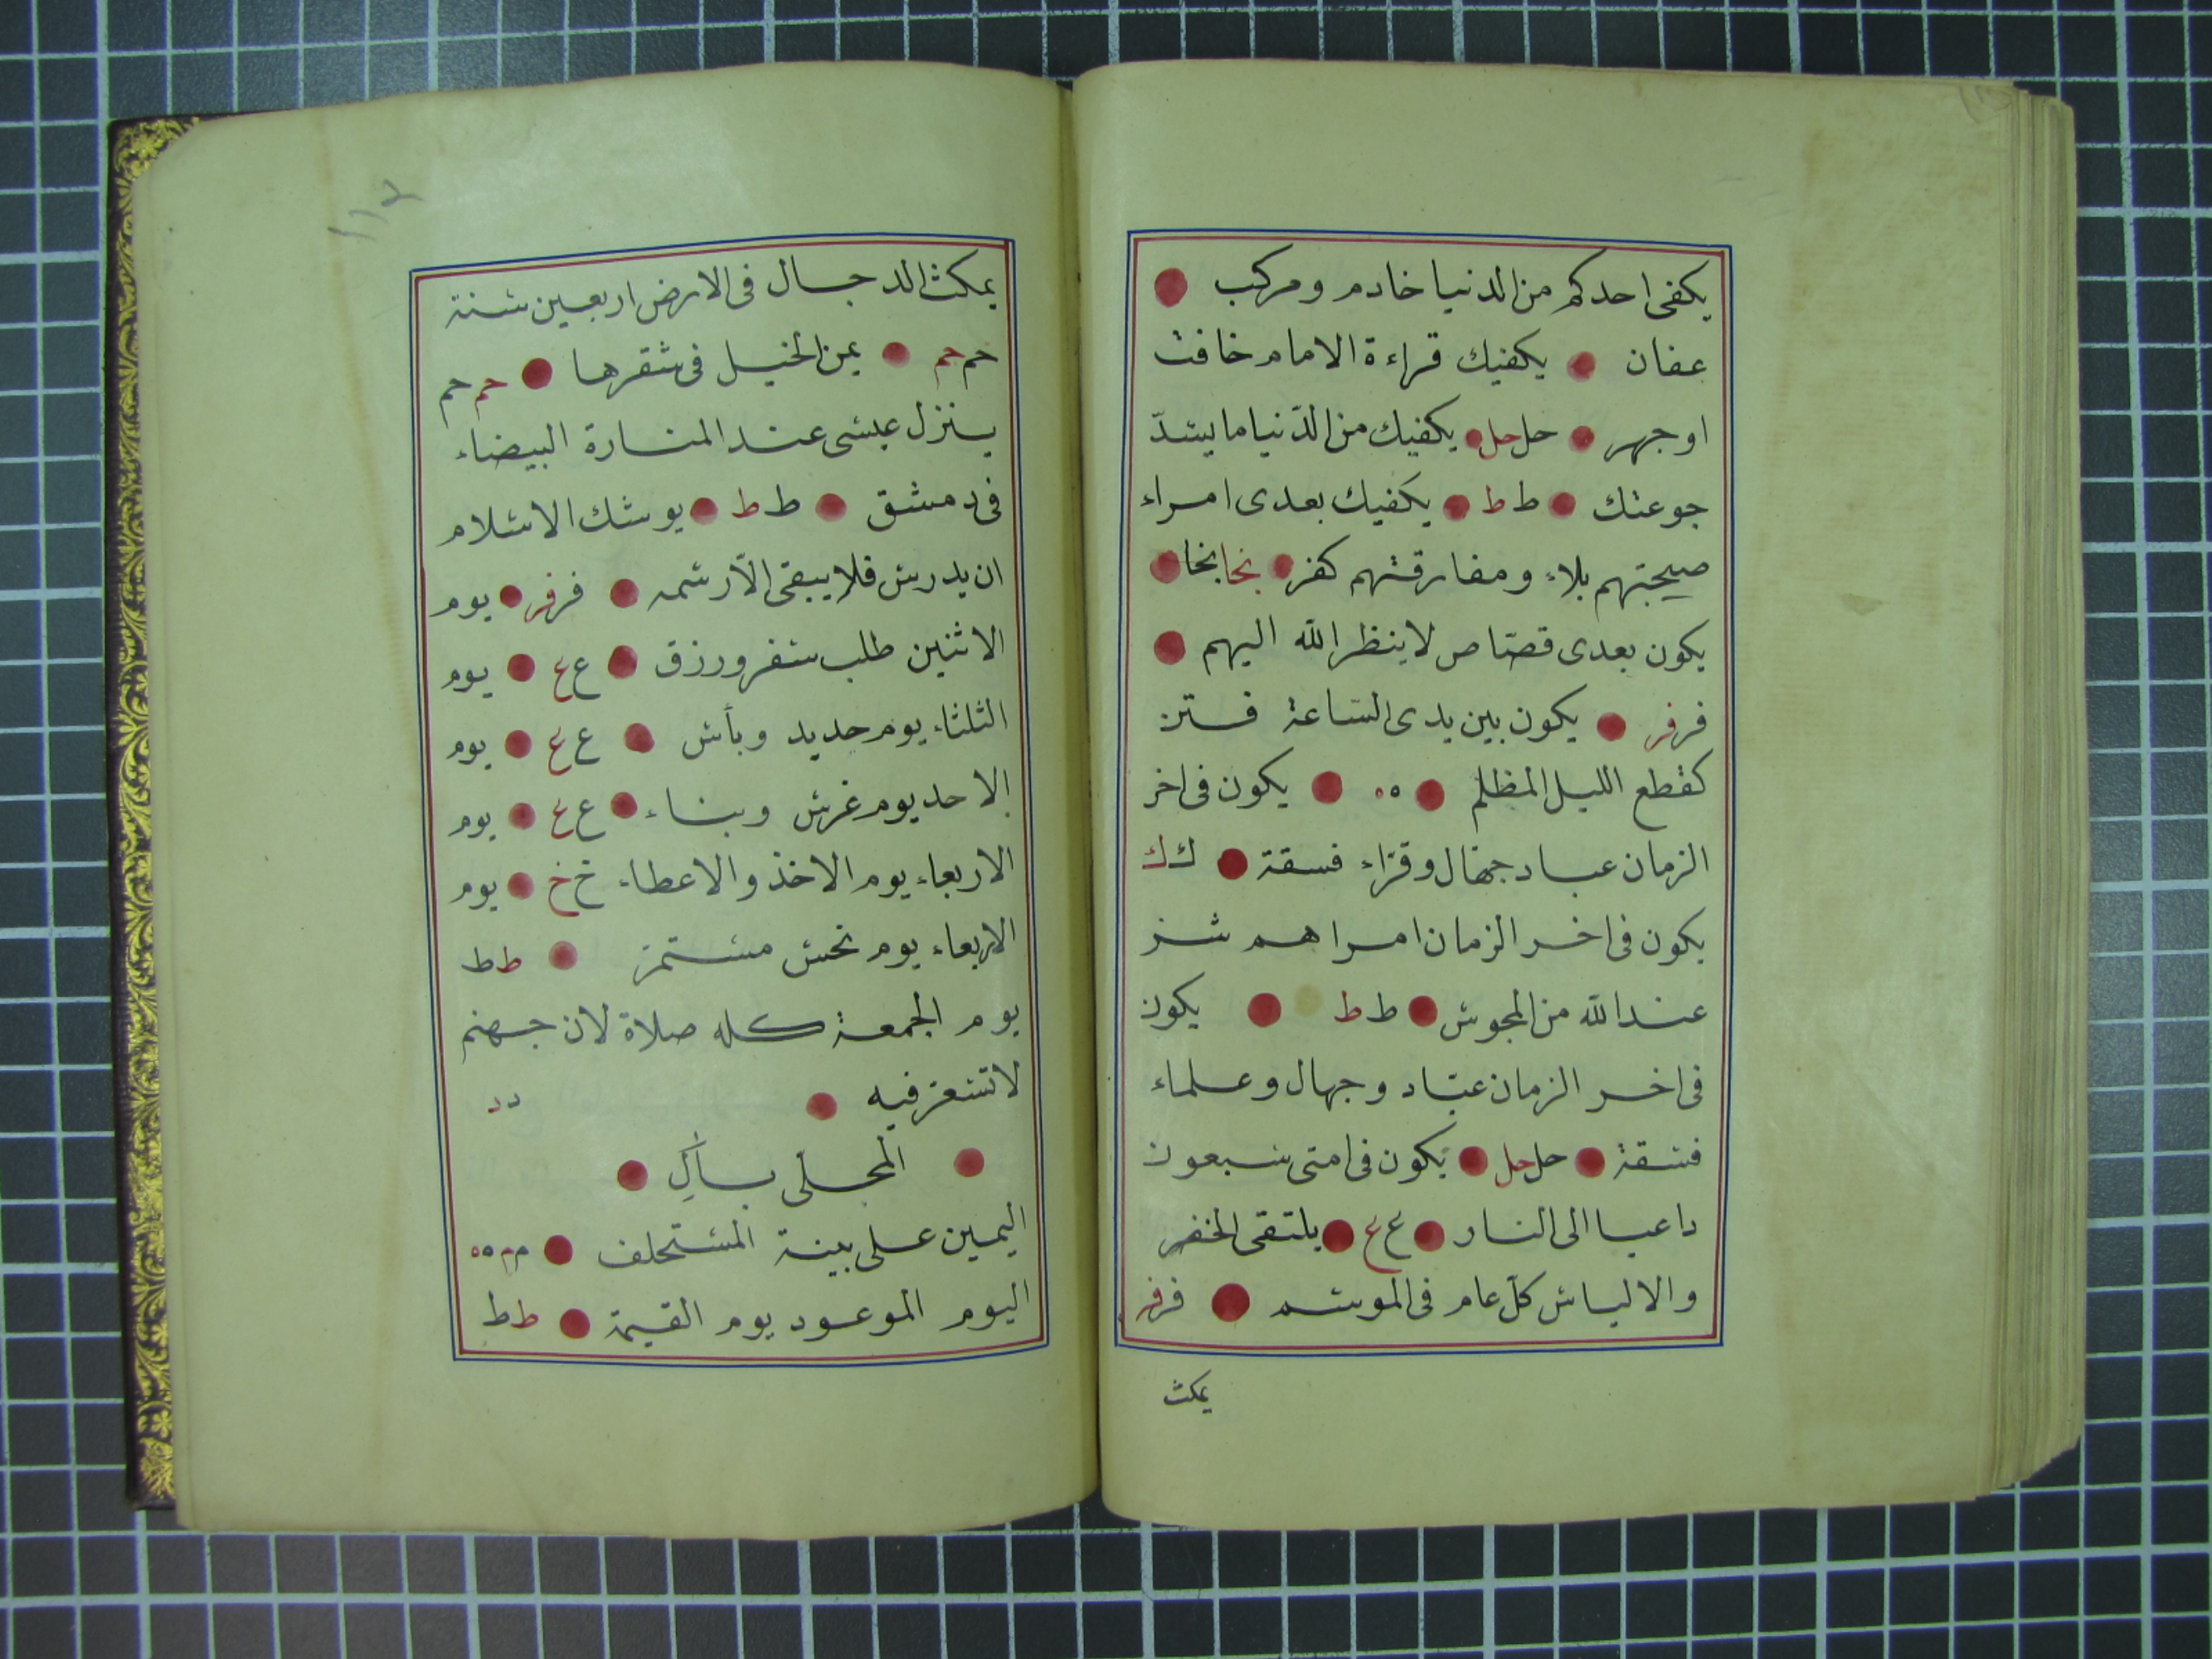 يكفى احدكم من الدنيا خادم ومركب
عفان يكفيك قراءة الامام خافت
او جهر حل حل يكفيك من الدّنيا ما يسدّ
جوعتك ط ط يكفيك بعدى امراء
صيحبتهم بلاء ومفارقتهم كفر نجا نجا
يكون بعدى قصّاص لا ينظر الله اليهم
فر فر يكون بين يدى الساعة فتن
كقطع الليل المظلم ه ه يكون فى اخر
الزمان عباد جهّال وقرّاء فسقة ك ك
يكون فى اخر الزمان امرا هم شر
عند الله من المجوس ط ط يكون
فى اخر الزمان عبّاد وجهال وعلماء
فسقة حل حل يكون فى امتى سبعون
داعيا الى النار ع ع يلتقى الخضر
والالياس كلّ عام فى الموسم فر فر
يمكث
١١٢
يمكث الدجال فى الارض اربعين سنة
حم حم يمن الخيل فى شقرها حم حم
ينزل عيسى عند المنارة البيضاء
فى دمشق ط ط يوشك الاسلام
ان يدرس فلا يبقى الّا رسمه فر فر يوم
الاثنين طلب سفر ورزق ع ع يوم
الثلثاء يوم حديد وبأس ع ع يوم
الاحد يوم غرس وبناء ع ع يوم
الاربعاء يوم الاخذ والاعطاء خ خ يوم
الاربعاء يوم نحس مستمر ط ط
يوم الجمعة كله صلاة لان جهنم
لا تسعر فيه د د
المحلى بال
اليمين على بينة المستحلف م م ه ه
اليوم الموعود يوم القيمة ط ط